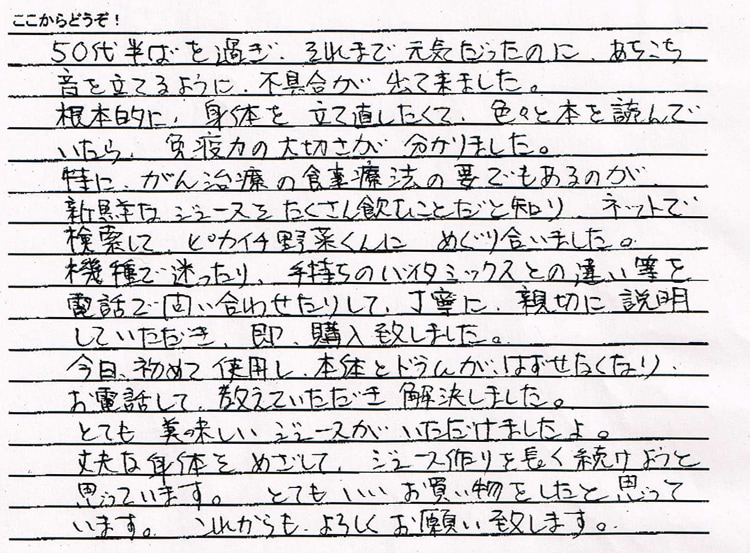 ここからどうぞ！
50代半ばを過ぎ、それまで元気だったのに、あちこち
音を立てるように、不具合が出て来ました。
根本的に、身体を立て直したくて、色々と本を読んで
いたら、免疫力の大切さが分かりました。
特に、がん治療の食事療法の要でもあるのが、
新鮮なジュースをたくさん飲むことだと知り、ネットで
検索して、ピカイチ野菜くんにめぐり合いました。
機種で迷ったり、手持ちのバイタミックスとの違い等を
電話で問い合わせたりして、丁寧に、親切に説明
していただき、即、購入致しました。
今日、初めて使用し、本体とドラムが、はずせなくなり、
お電話して、教えていただき解決しました。
とても美味しいジュースがいただけましたよ。
丈夫な身体をめざして、ジュース作りを長く続けようと
思っています。 とてもいいお買い物をしたと思って
います。 これからも、よろしくお願い致します。